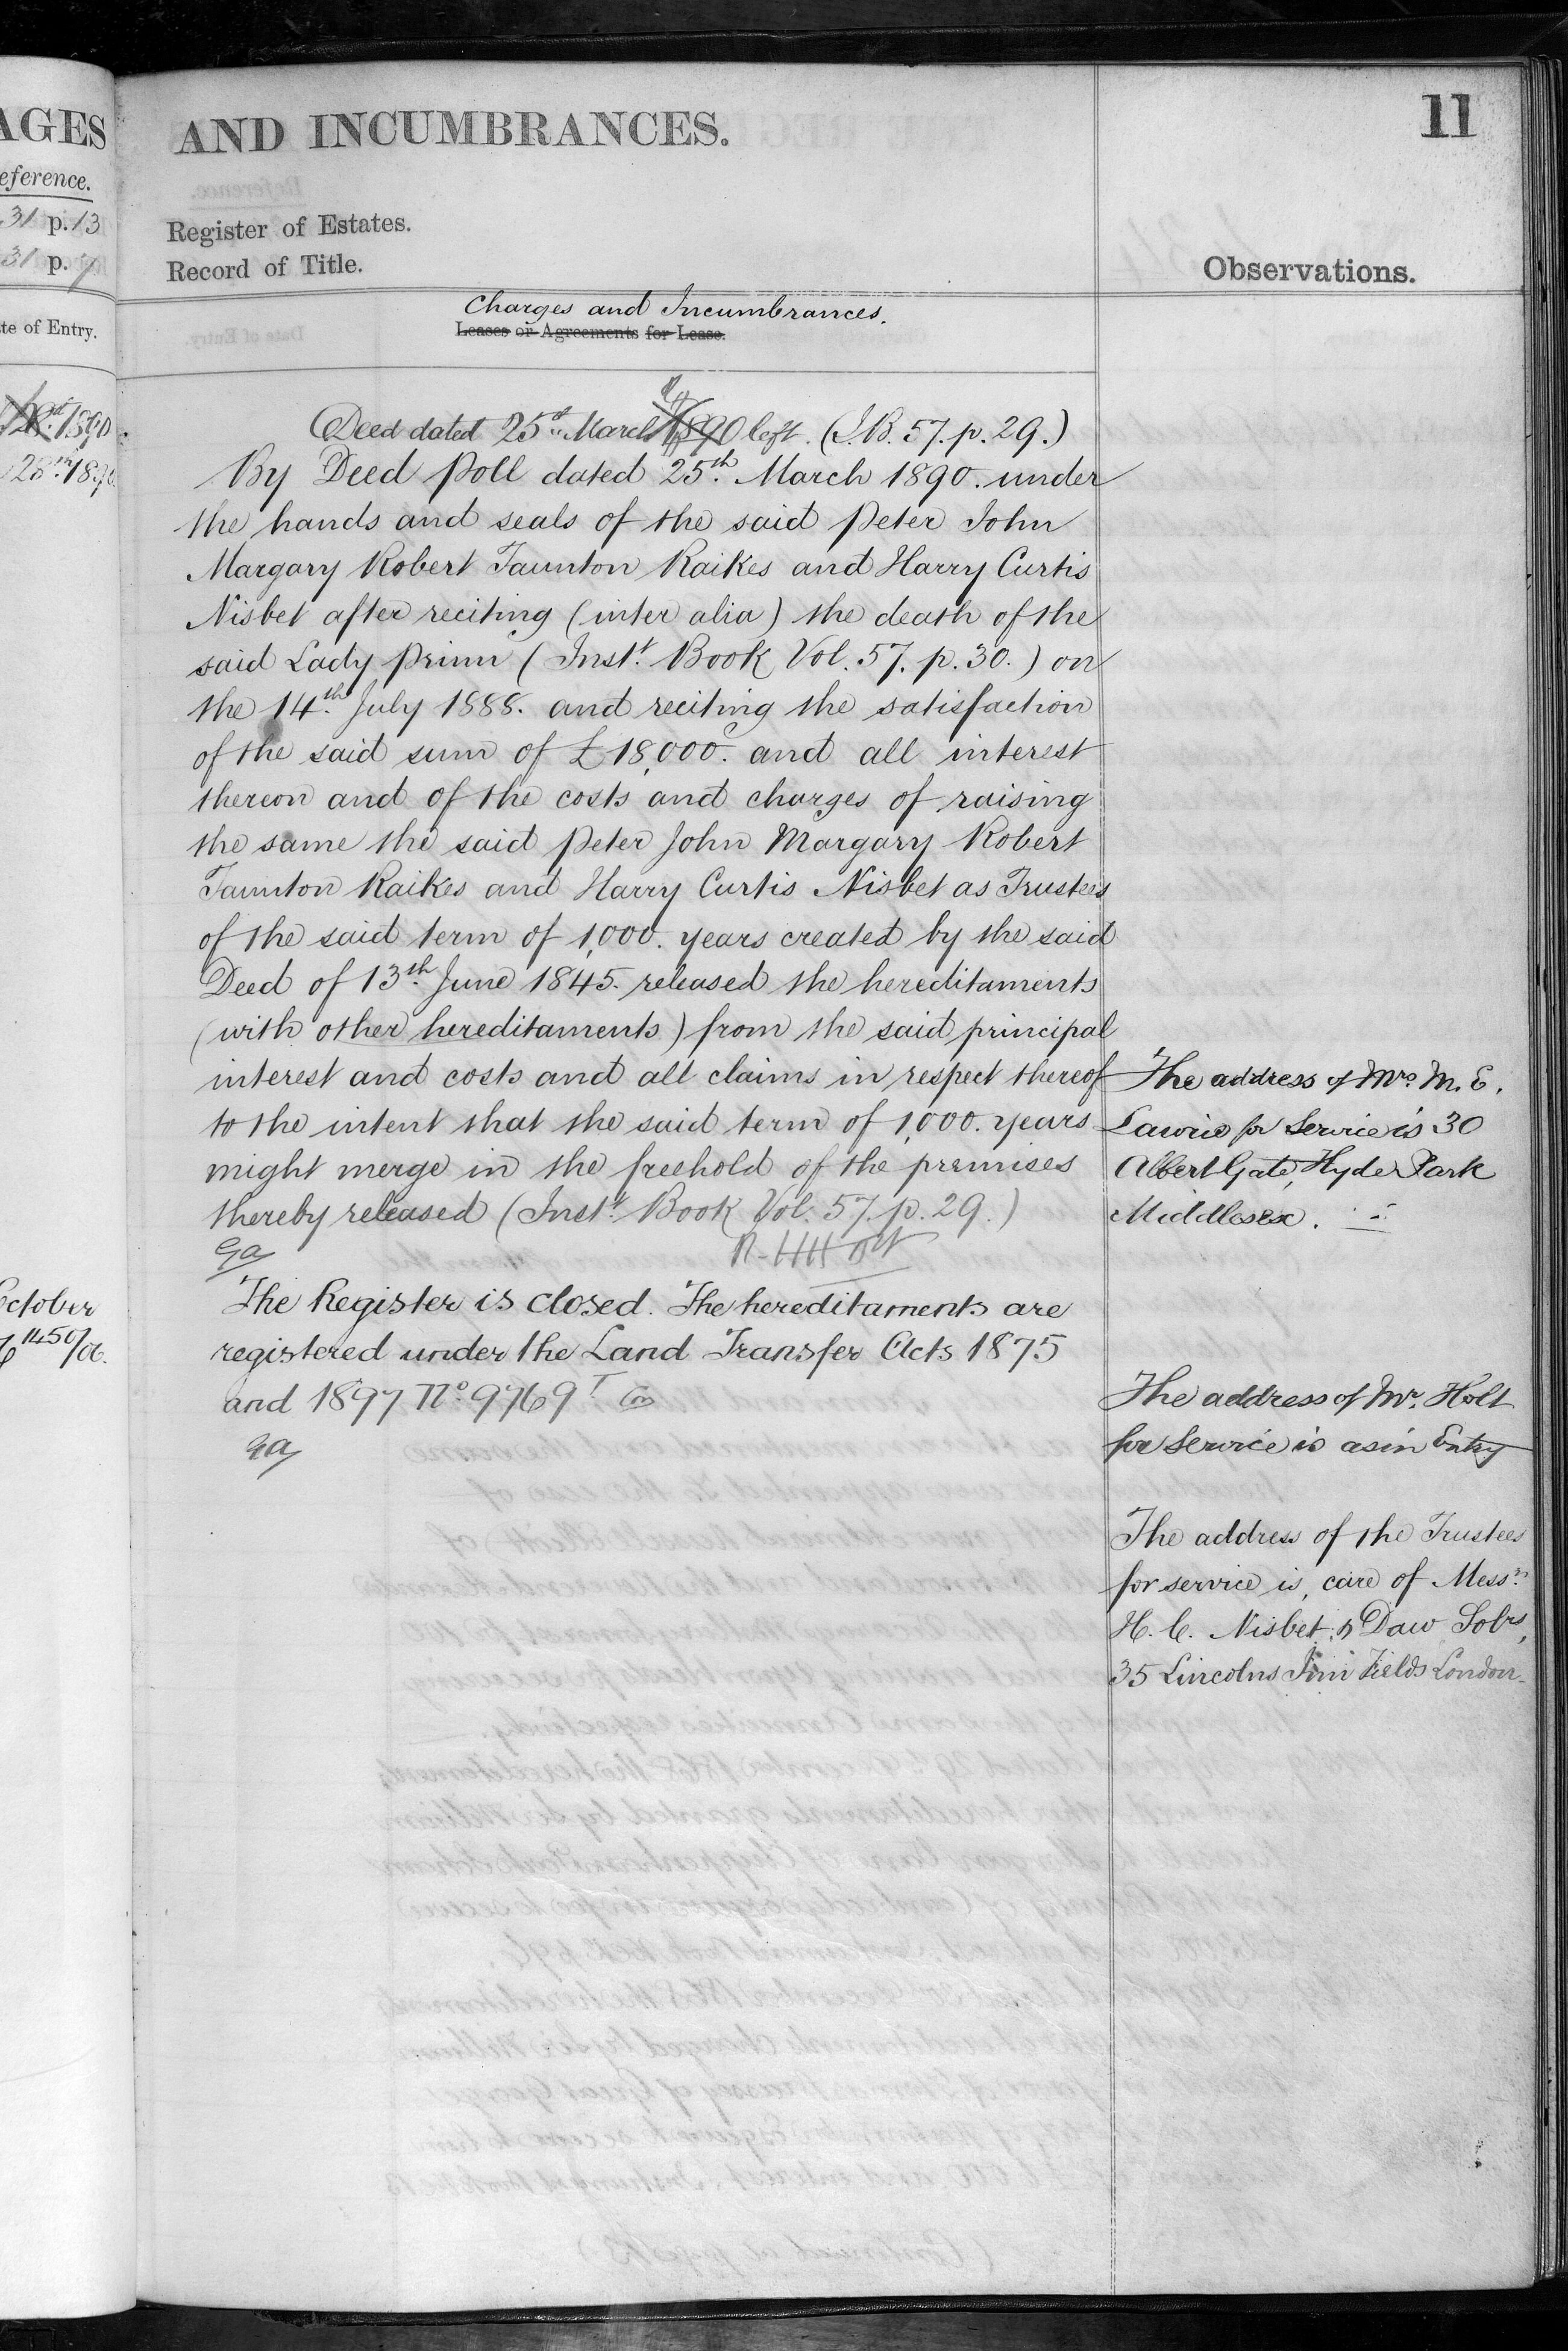 AGES
eference.
31 p. 13
31 p. 7
te of Entry.
1890
28th 1890
ctober
1450/06.
AND INCUMBRANCES.
11
Register of Estates.
Record of Title.
Observations.
Charges and Incumbrances.
Leases or Agreements for Lease.
Deed dated 25th March 1890 left. (I.B. 57. p. 29.)
By Deed Poll dated 25th March 1890. under
the hands and seals of the said Peter John
Margary Robert Taunton Raikes and Harry Curtis
Nisbet after reciting (inter alia) the death of the
said Lady Prinn (Instt. Book Vol. 57. p. 30.) on
the 14th July 1888. and reciting the satisfaction
of the said sum of £18,000. and all interest
thereon and of the costs and charges of raising
the same the said Peter John Margary Robert
Taunton Raikes and Harry Curtis Nisbet as Trustees
of the said term of 1,000. years created by the said
Deed of 13th June 1845. released the hereditaments
(with other hereditaments) from the said principal
interest and costs and all claims in respect thereof
to the intent that the said term of 1,000. years
might merge in the freehold of the premises
thereby released (Instt. Book Vol. 57. p. 29.)
The Register is closed. The hereditaments are
registered under the Land Transfer Acts 1875
and 1897 No. 9769
The address of Mrs M. E.
Lawrie for Service is 30
Albert Gate, Hyde Park
Middlesex.
The address of Mr. Holt
for Service is as in Entry
The address of the Trustees
for service is, care of Messrs
H. C. Nisbet, & Daw Solrs,
35 Lincolns Inn Fields London